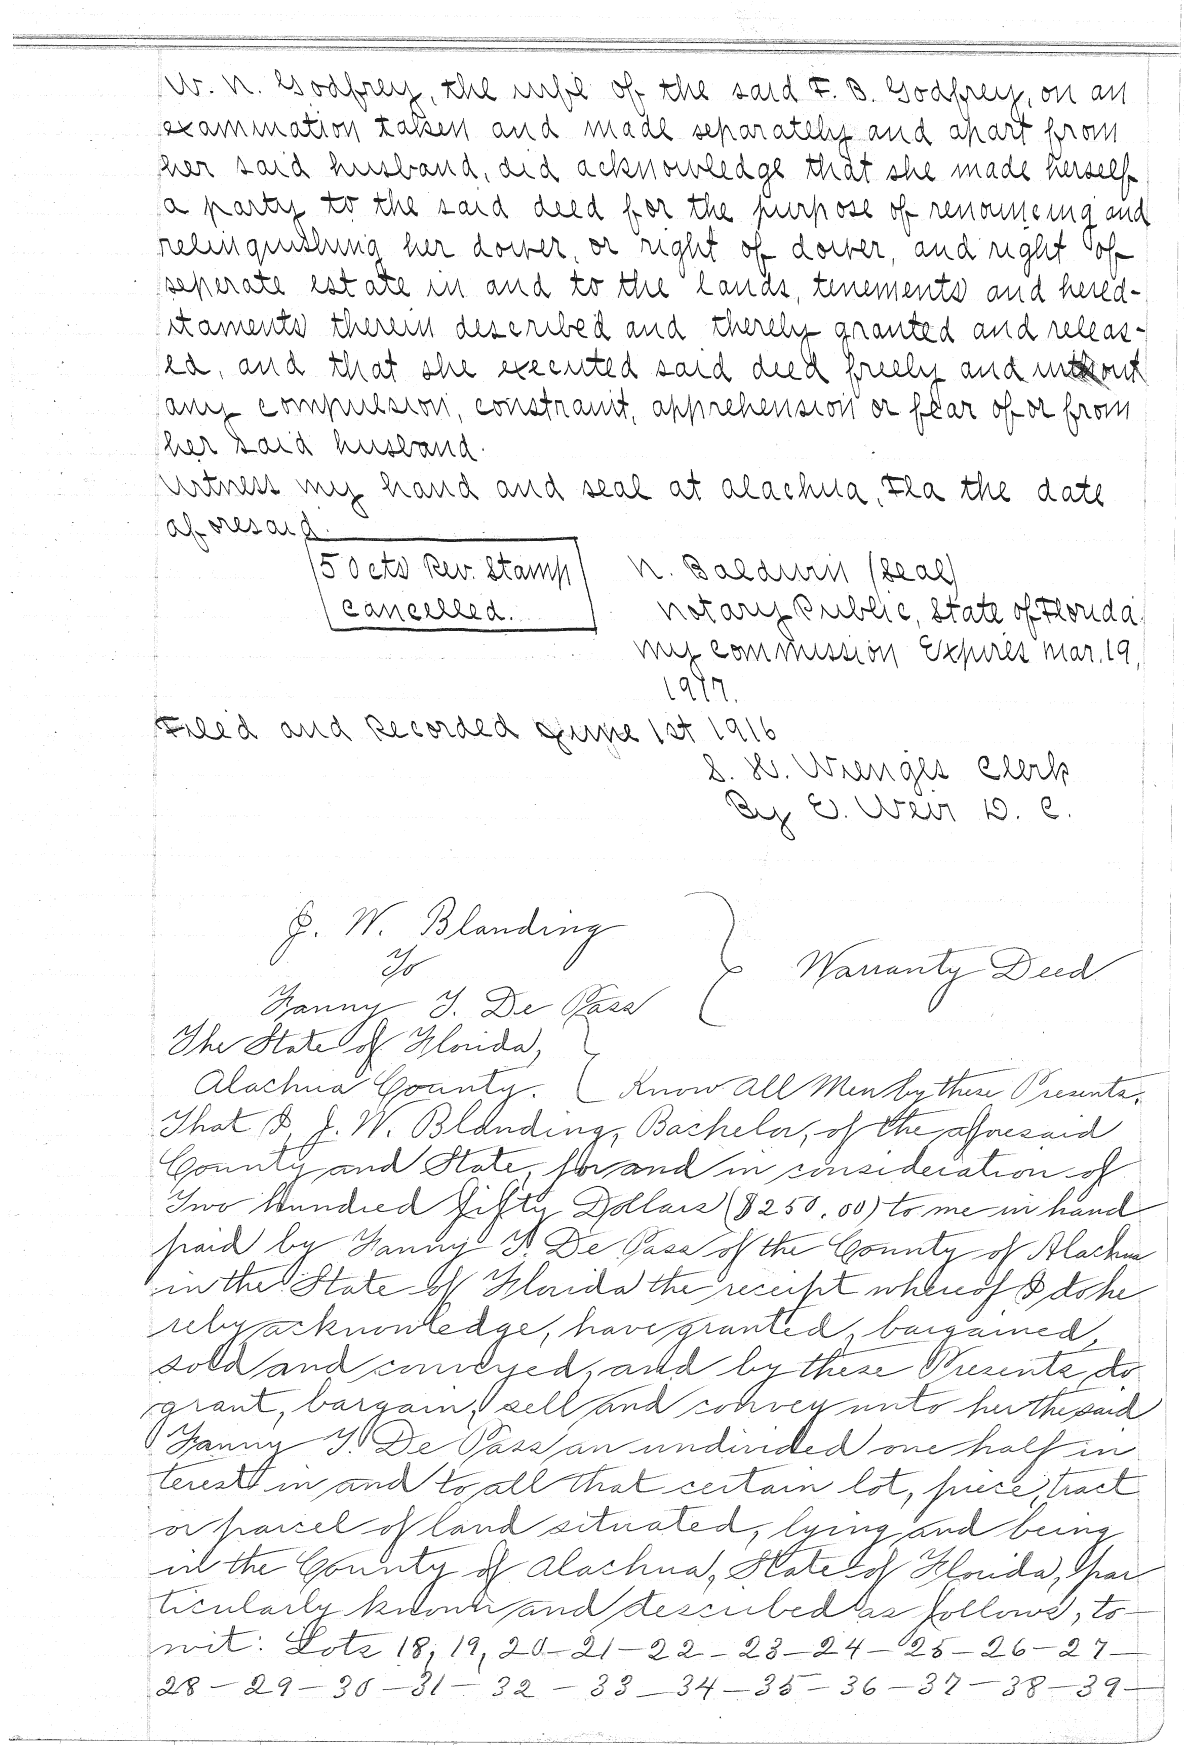 W. N. Godfrey, the wife of the said F. B. Godfrey, on an
examination taken and made separately and apart from
her said husband, did acknowledge that she made herself
a party to the said deed for the purpose of renouncing and
relinquishing her dower, or right of dower, and right of
seperate estate in and to the lands, tenements and hered-
itaments therein described and thereby granted and releas-
ed, and that she executed said deed freely and without
any compulsion, constraint, apprehension or fear of or from
her said husband.
Witness my hand and seal at Alachua, Fla the date
aforesaid.
50cts Rev. Stamp
cancelled.
N. Baldwin (Seal)
Notary Public, State of Florida.
My Commission Expires Mar. 19,
1917.
Filed and Recorded June 1st 1916
S. H. Wienges Clerk
By E. Weir D. C.
J. W. Blanding
To
Fanny T. De Pass
Warranty Deed
The State of Florida,
Alachua County. Know All Men by these Presents.
That I, J. W. Blanding, Bachelor, of the aforesaid
County and State, for and in consideration of
Two hundred fifty Dollars ($250.00) to me in hand
paid by Fanny T. De Pass of the County of Alachua
in the State of Florida the receipt whereof I do he
reby acknowledge, have granted, bargained,
sold and conveyed, and by these Presents do
grant, bargain, sell and convey unto her the said
Fanny T. De Pass an undivided one half in
terest in and to all that certain lot, piece, tract
or parcel of land situated, lying and being
in the County of Alachua, State of Florida, par
ticularly known and described as follows, to—
wit: Lots 18, 19, 20—21—22—23—24—25—26—27—
28—29—30—31—32—33—34—35—36—37—38—39—